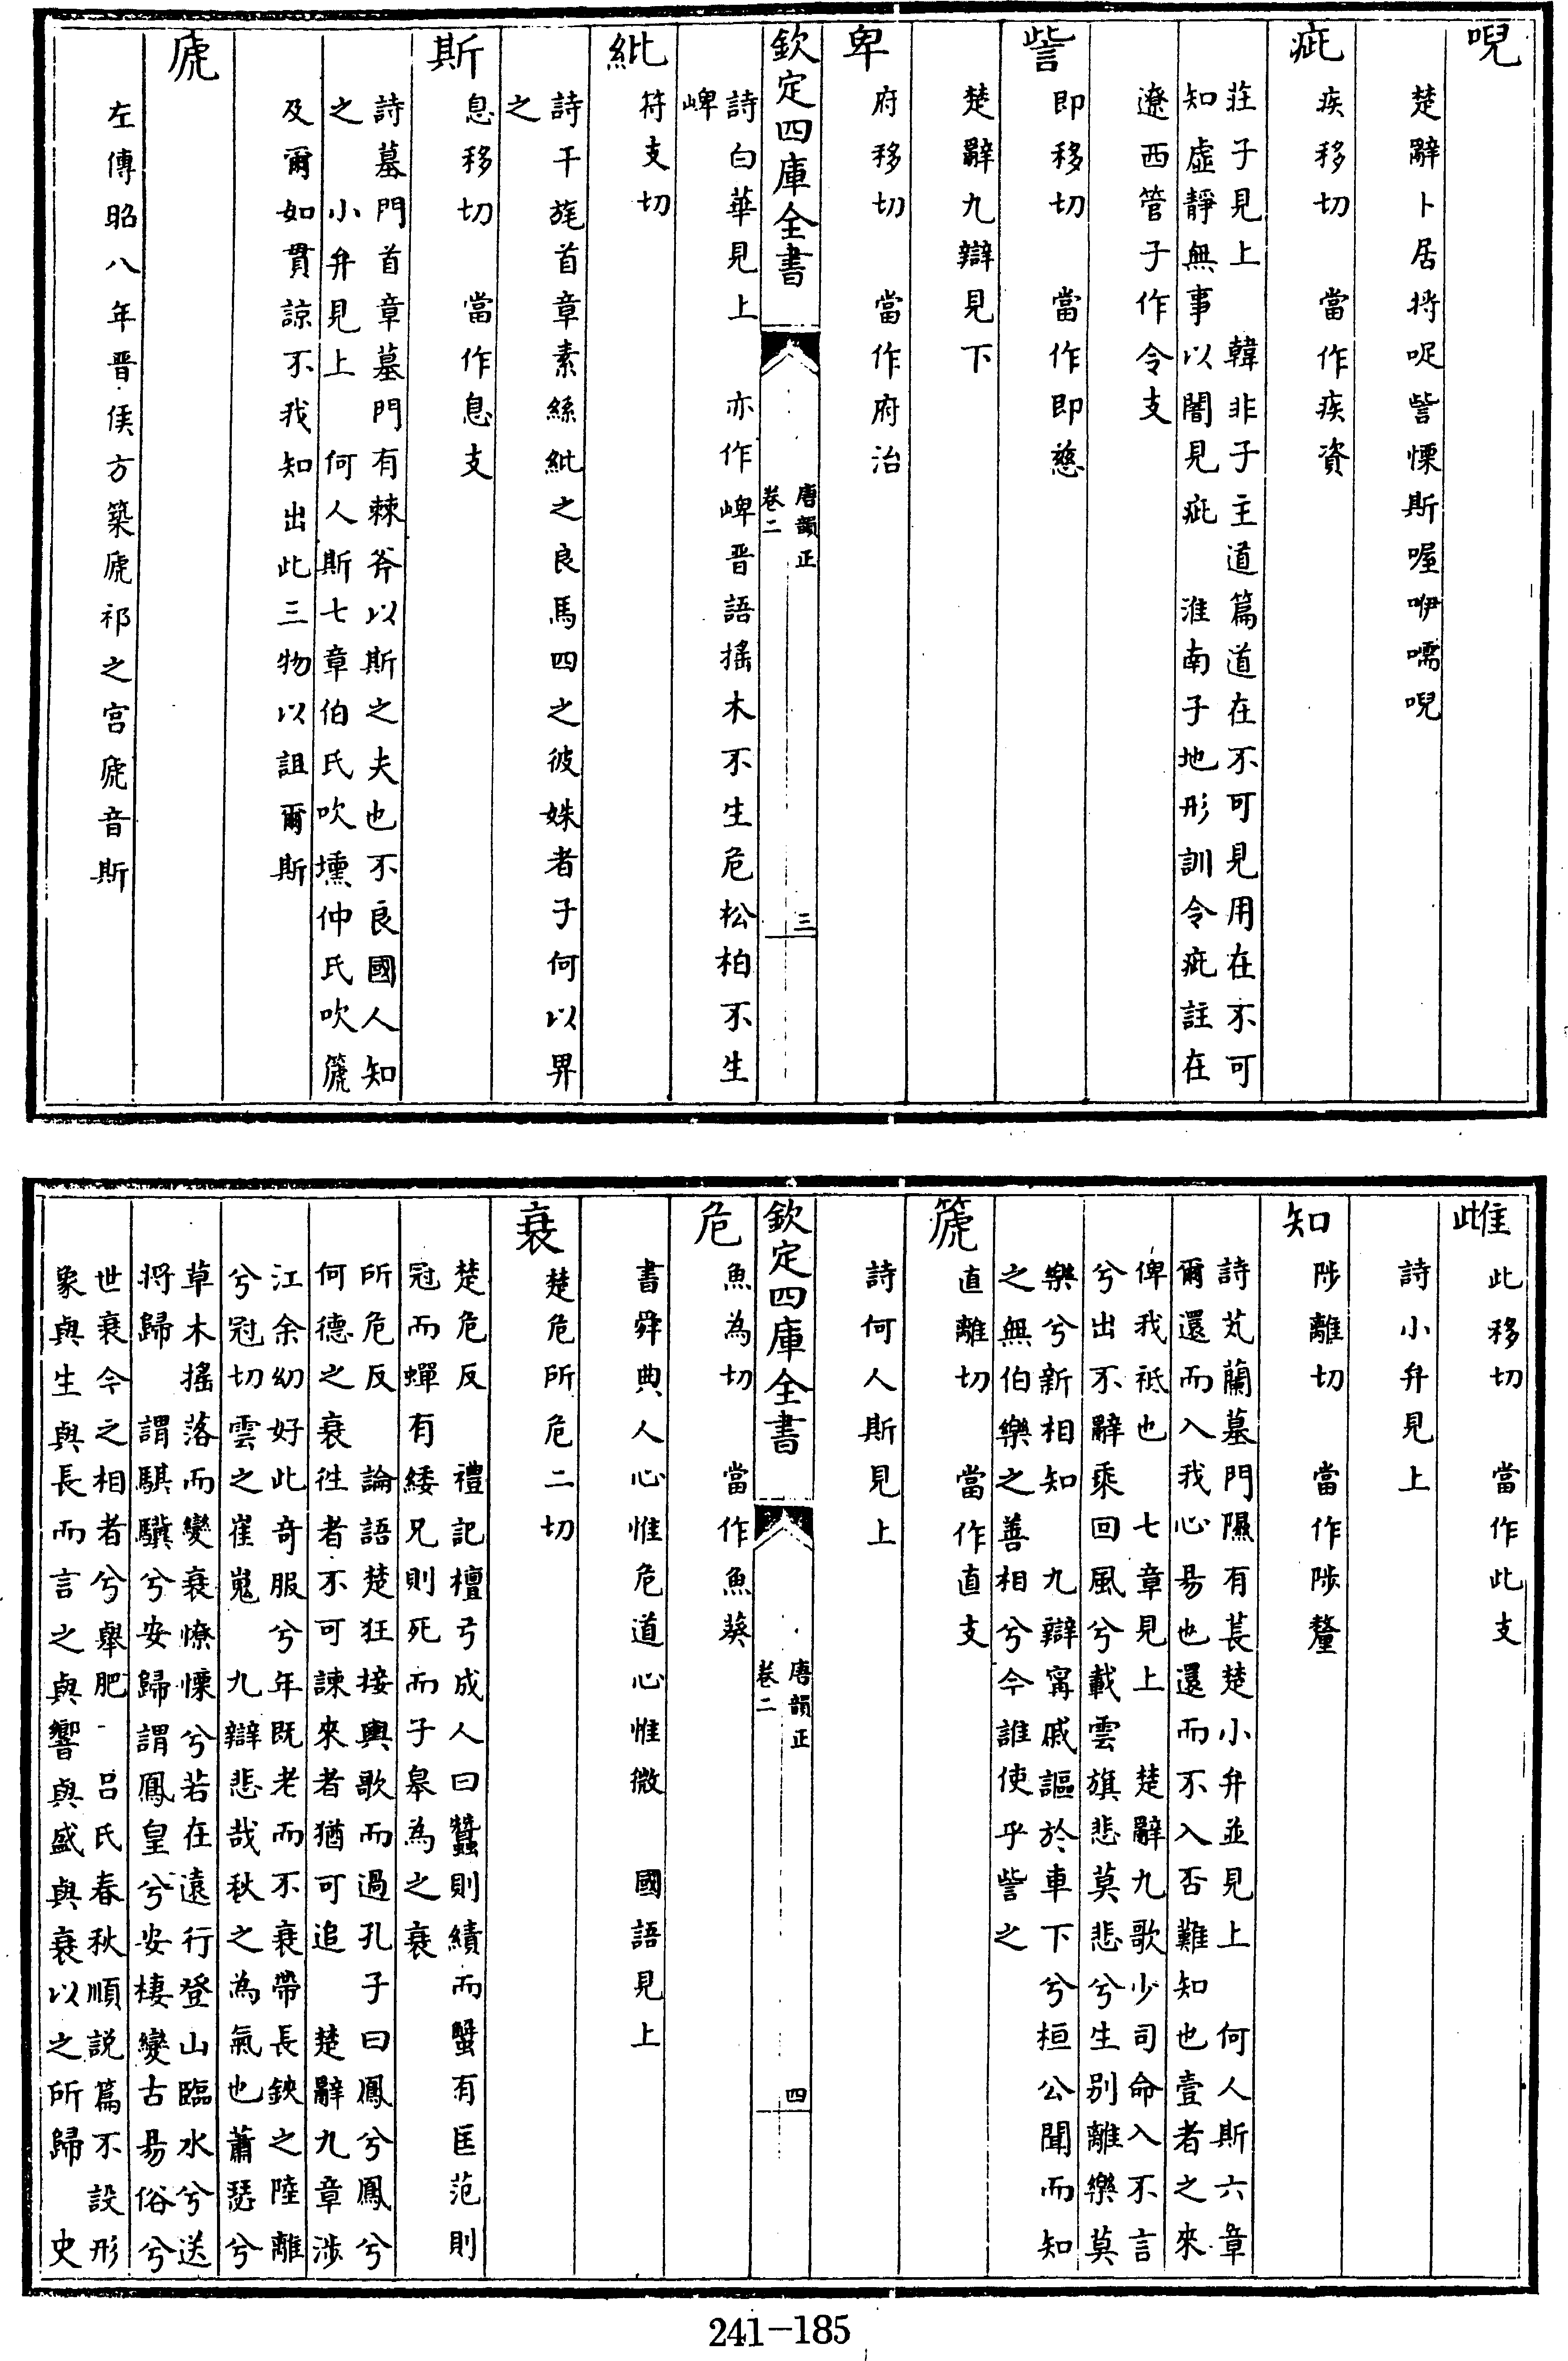 唲
楚辭卜居將哫訾慄斯喔咿嚅唲
疵疾移切　當作疾資
莊子見上　韓非子主道篇道在不可見用在不可
知虛靜無事以闇見疵　淮南子地形訓令疵註在
遼西管子作令支
訾即移切　當作即慈
楚辭九辯見下
卑府移切　當作府治
欽定四庫全書
唐韻正
卷二
三
詩白華見上　亦作崥晉語搖木不生危松柏不生
崥
紕符支切
詩干旄首章素絲紕之良馬四之彼姝者子何以畀
之
斯息移切　當作息支
詩墓門首章墓門有棘斧以斯之夫也不良國人知
之　小弁見上　何人斯七章伯氏吹壎仲氏吹篪
及爾如貫諒不我知出此三物以詛爾斯
虒
左傳昭八年晉侯方築虒祁之宮虒音斯
雌此移切　當作此支
詩小弁見上
知陟離切　當作陟釐
詩芄蘭墓門隰有萇楚小弁並見上　何人斯六章
爾還而入我心易也還而不入否難知也壹者之來
俾我祇也　七章見上　楚辭九歌少司命入不言
兮出不辭乘回風兮載雲旗悲莫悲兮生别離樂莫
樂兮新相知　九辯甯戚謳於車下兮桓公聞而知
之無伯樂之善相兮今誰使乎訾之
篪直離切　當作直支
詩何人斯見上
欽定四庫全書
唐韻正
卷二
四
危魚為切　當作魚葵
書舜典人心惟危道心惟微　國語見上
衰楚危所危二切
楚危反　禮記檀弓成人曰蠶則績而蟹有匡范則
冠而蟬有緌兄則死而子皋為之衰
所危反　論語楚狂接輿歌而過孔子曰鳳兮鳳兮
何德之衰往者不可諫來者猶可追　楚辭九章涉
江余幼好此奇服兮年既老而不衰帶長鋏之陸離
兮冠切雲之崔嵬　九辯悲哉秋之為氣也蕭瑟兮
草木搖落而變衰憭慄兮若在遠行登山臨水兮送
將歸　謂騏驥兮安歸謂鳳皇兮安棲變古易俗兮
世衰今之相者兮舉肥　吕氏春秋順説篇不設形
象與生與長而言之與響與盛與衰以之所歸　史
241-185